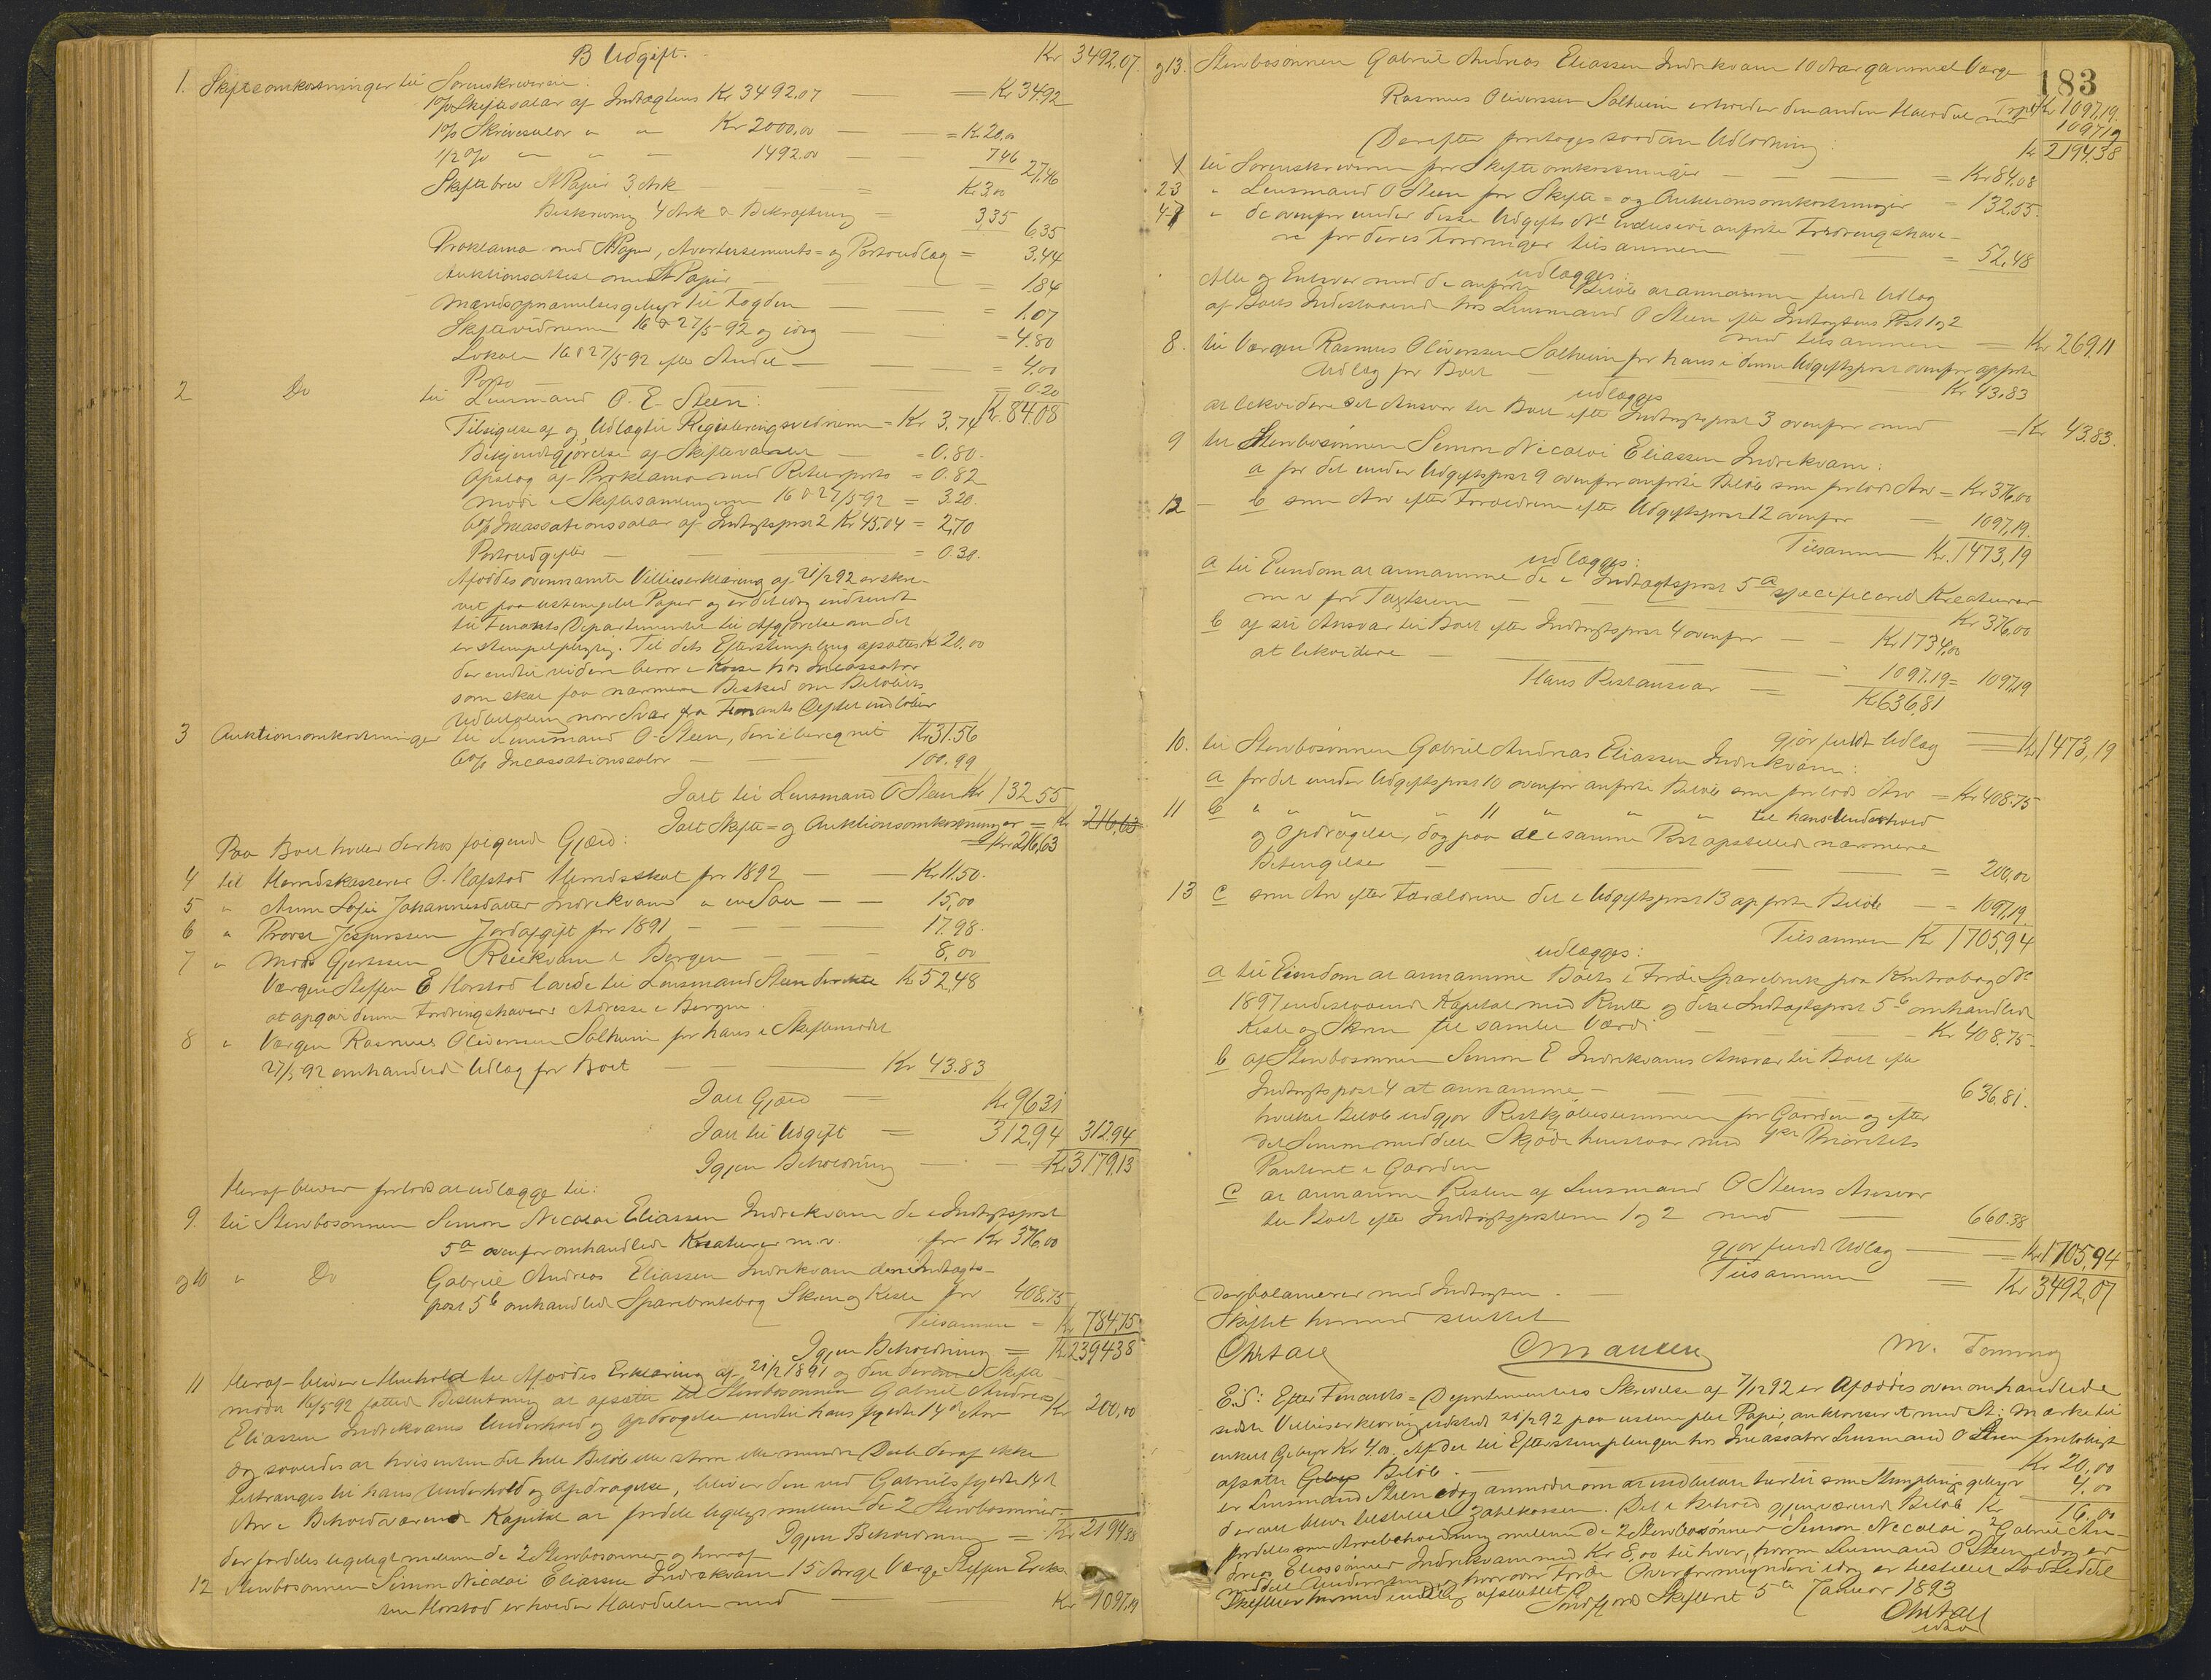 B Udgift.
Kr 3492.07.
1. Skifteomkostninger til Sorenskriveren:
1% Skiftesalær af Indtægtens Kr 3492.07 — = Kr 34.92
1% Skrivesalær " " Kr 2000,00 — = Kr 20,00
1/2 % " " — 1492.00 — 7.46 27,46
Skiftebrev St Papir 3 Ark — = Kr 3.00
Beskrivning 4 Ark & Bekræftning = 3,35 6.35
Proklama med St Papir, Avertissements= og Portoudlæg = 3.44
Auktionsattest med St Papir — = 1.84
Mandsopnævnelsesgebyr til Fogden — = 1.07
Skiftevidnerne 16 & 27/5-92 og idag — = 4.80
Lokale 16 & 27/5 92 efter Andel — = 4.00
Porto — = 0.20
Kr. 84.08
2 Do til Lensmand O. E. Steen:
Tilsigelse af og Udlæg til Registreringsvidnerne = Kr 3,74
Bekjendtgjørelse af Skiftevarsel — = 0.80.
Opslag af Proklama med Returporto = 0.82
Møde i Skiftesamlingerne 16 & 27/5-92 = 3.20.
6% Incassationssalær af Indtægtspost 2 Kr 45,04 = 2,70
Portoudgifter — = 0.30.
Afdødes ovennævnte Villieserklæring af 21/12 92 er skre-
vet paa ustemplet Papir og er det idag indsendt
til Finants Departementet til Afgjørelse om det
er stempelpligtig. Til dets Efterstempling afsættes Kr 20,00
der indtil videre beror i Kasse hos Incassator
som skal faa nærmere Besked om Beløbets
Udbetaling naar Svar fra Finants Deptet indløber
Kr 31.56
3 Auktionsomkostninger til Lensmand O. Steen, deri iberegnet
6% Incassationssalær — 100.99
Ialt til Lensmand O Steen Kr 132.55
Ialt Skifte= og Auktionsomkostninger = Kr 216,63
= Kr 216,63
Paa Boet hviler derhos følgende Gjæld:
4 til Herredskasserer O. Hafstad Herredsskat for 1892 — Kr 11.50.
5 " Anne Sofie Johannesdatter Indrekvam " en Sau — 15,00
6 " Provst Jespersen Jordafgift for 1891 — 17.98.
7 " Mads Gjertssen Reiekvam i Bergen — 8,00
Kr 52,48
Værgen Steffen E Horstad lovede til Lensmand Steen direkte
at opgive denne Fordringshavers Adresse i Bergen.
8 " Værgen Rasmus Oliverssen Solheim for hans i Skiftemødet
27/5 92 omhandlede Udlæg for Boet — Kr 43.83
Ialt Gjæld — Kr 96.31
Ialt til Udgift = 312,94 312.94
Igjen Beholdning — Kr 3179,13
Heraf bliver forlods at udlægge til:
9. til Stervbosønnen Simon Nicolai Eliassen Indrekvam de i Indtægtspost
5a ovenfor omhandlede Kreaturer m.v. for Kr 376,00
og 10 " Do Gabriel Andreas Eliassen Indrekvam den i Indtægts-
post 5b omhandlede Sparebankebog Skrin og Kiste for 408.75
Tilsammen = Kr 784,75
Igjen Beholdning = Kr 2394.38
11 Heraf bliver i Henhold til Afdødes Erklæring af 21/12 1891 og den derom i Skifte-
mødet 16/5 92 fattede Beslutning at afsætte til Stervbosønnen Gabriel Andreas
Eliassen Indrekvams Underhold og Opdragelse indtil hans fyldte 14de Aar Kr 200,00
dog saaledes at hvis enten det hele Beløb eller større eller mindre Deele deraf ikke
tiltrænges til hans Underhold og Opdragelse, bliver den ved Gabriels fyldte 14de
Aar i Behold værende Kapital at fordele ligelig mellem de 2 Stervbosønner.
Igjen Beholdning = Kr 2194.38
der fordeles ligeligt mellem de 2 Stervbosønner og heraf
12 Stervbosønnen Simon Nicolai Eliassen Indrekvam 15 Aarig Værge Steffen Erik-
sen Horstad erholder Halvdelen med — Kr 1097,19
183
og 13. Stervbosønnen Gabriel Andreas Eliassen Indrekvam 10 Aar gammel Værge
Rasmus Oliverssen Solheim erholder den anden Halvdel med Kr 1097,19.
1097,19
Kr 2194,38
Derefter foretoges saadan Udlodning:
1 til Sorenskriveren for Skifteomkostninger — = Kr 84,08
2-3 " Lensmand O Steen for Skifte= og Auktionsomkostninger = 132,55.
4-7 " de ovenfor under disse Udgifts No inclusive anførte Fordringshave-
re for deres Fordringer tilsammen — = 52,48
udlægges:
Alle og Enhver med de anførte Beløb at annamme fuldt Udlæg
af Boets Indestaaende hos Lensmand O Steen efter Indtægtens Post 1 og 2
med tilsammen — Kr 269,11
8. til Værgen Rasmus Oliverssen Solheim for hans i denne Udgiftspost ovenfor opførte
Udlæg for Boet — Kr 43.83
udlægges
at likvidere sit Ansvar til Boet efter Indtægtspost 3 ovenfor med = Kr 43.83.
9 til Stervbosønnen Simon Nicolai Eliassen Indrekvam:
a for det under Udgiftspost 9 ovenfor anførte Beløb som forlods Arv = Kr 376,00
12 — b som Arv efter Forældrene efter Udgiftspost 12 ovenfor — 1097,19.
Tilsammen Kr. 1473,19
udlægges:
a til Eiendom at annamme de i Indtægtspost 5a specificerede Kreaturer
m v for Taxtsum — Kr 376,00
b af sit Ansvar til Boet efter Indtægtspost 4 ovenfor — Kr 1734,00
at likvidere — 1097.19 = 1097,19
Hans Restansvar — Kr 636,81
gjør fuldt Udlæg — Kr 1473,19
10. til Stervbosønnen Gabriel Andreas Eliassen Indrekvam:
a for det under Udgiftspost 10 ovenfor anførte Beløb som forlods Arv = Kr 408.75
11 b " " " " 11 " " " til hans Underhold
og Opdragelse, dog paa de i samme Post opstillede nærmere
Betingelser — = 200,00
13 c som Arv efter Forældrene det i Udgiftspost 13 opførte Beløb — = 1097,19.
Tilsammen Kr 1705,94
udlægges:
a til Eiendom at annamme Boets i Førde Sparebank paa Kontrabog No
1897 indestaaende Kapital med Rente og den i Indtægtspost 5b omhandlede
Kiste og Skrin til samlet Værdi — Kr 408.75
b af Stervbosønnen Simon E Indrekvams Ansvar til Boet efter
Indtægtspost 4 at annamme — 636.81.
hvilket Beløb udgjør Restkjøbesummen for Gaarden og efter
det Simon meddelte Skjøde henstaar med 1ste Prioritets
Panteret i Gaarden
c at annamme Resten af Lensmand O Steens Ansvar
til Boet efter Indtægtsposterne 1 og 2 med — 660.38
gjør fuldt Udlæg — = Kr 1705,94
Tilsammen = Kr 3492,07
der balancerer med Indtægten.
Skiftet hermed sluttet
M.
E.S: Efter Finants=Departementets Skrivelse af 7/12 92 er Afdødes ovenomhandlede
sidste Villieserklæring udstedt 21/12 92 paa ustemplet Papir, med St: Mærke til
enkelt Gebyr Kr 4,00. Af det til Efterstemplingen hos Incassator Lensmand O Steen foreløbigt
afsatte Gebyr Beløb — Kr 20,00
er Lensmand Steen idag anmodet om at indbetale hertil som Stemplingsgebyr 4,00
Det i Behold gjenværende Beløb Kr 16,00
fordeles som Arvebeholdning mellem de 2 Stervbosønner Simon Nicolai og Gabriel An-
dreas Eliassønner Indrekvam med Kr 8,00 til hver, hvorom Lensmand O Steen idag er
meddelt Underretning og hvorover Førde Overformynderi idag er tilstillet Lodseddel
Skiftet er hermed endelig afsluttet.
Søndfjord Skifteret 5te Januar 1893